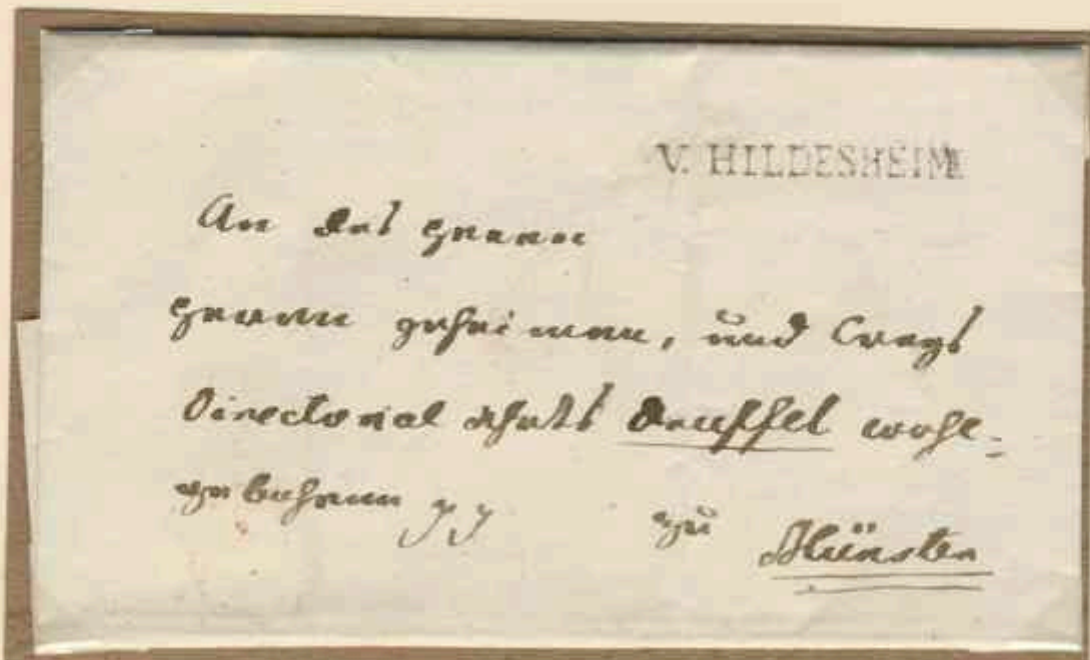 V. HILDESHEIM
An des Herrn
Herrn geheimen, und Creys
Directorial Druffel wohl-
gebohren zu Münster